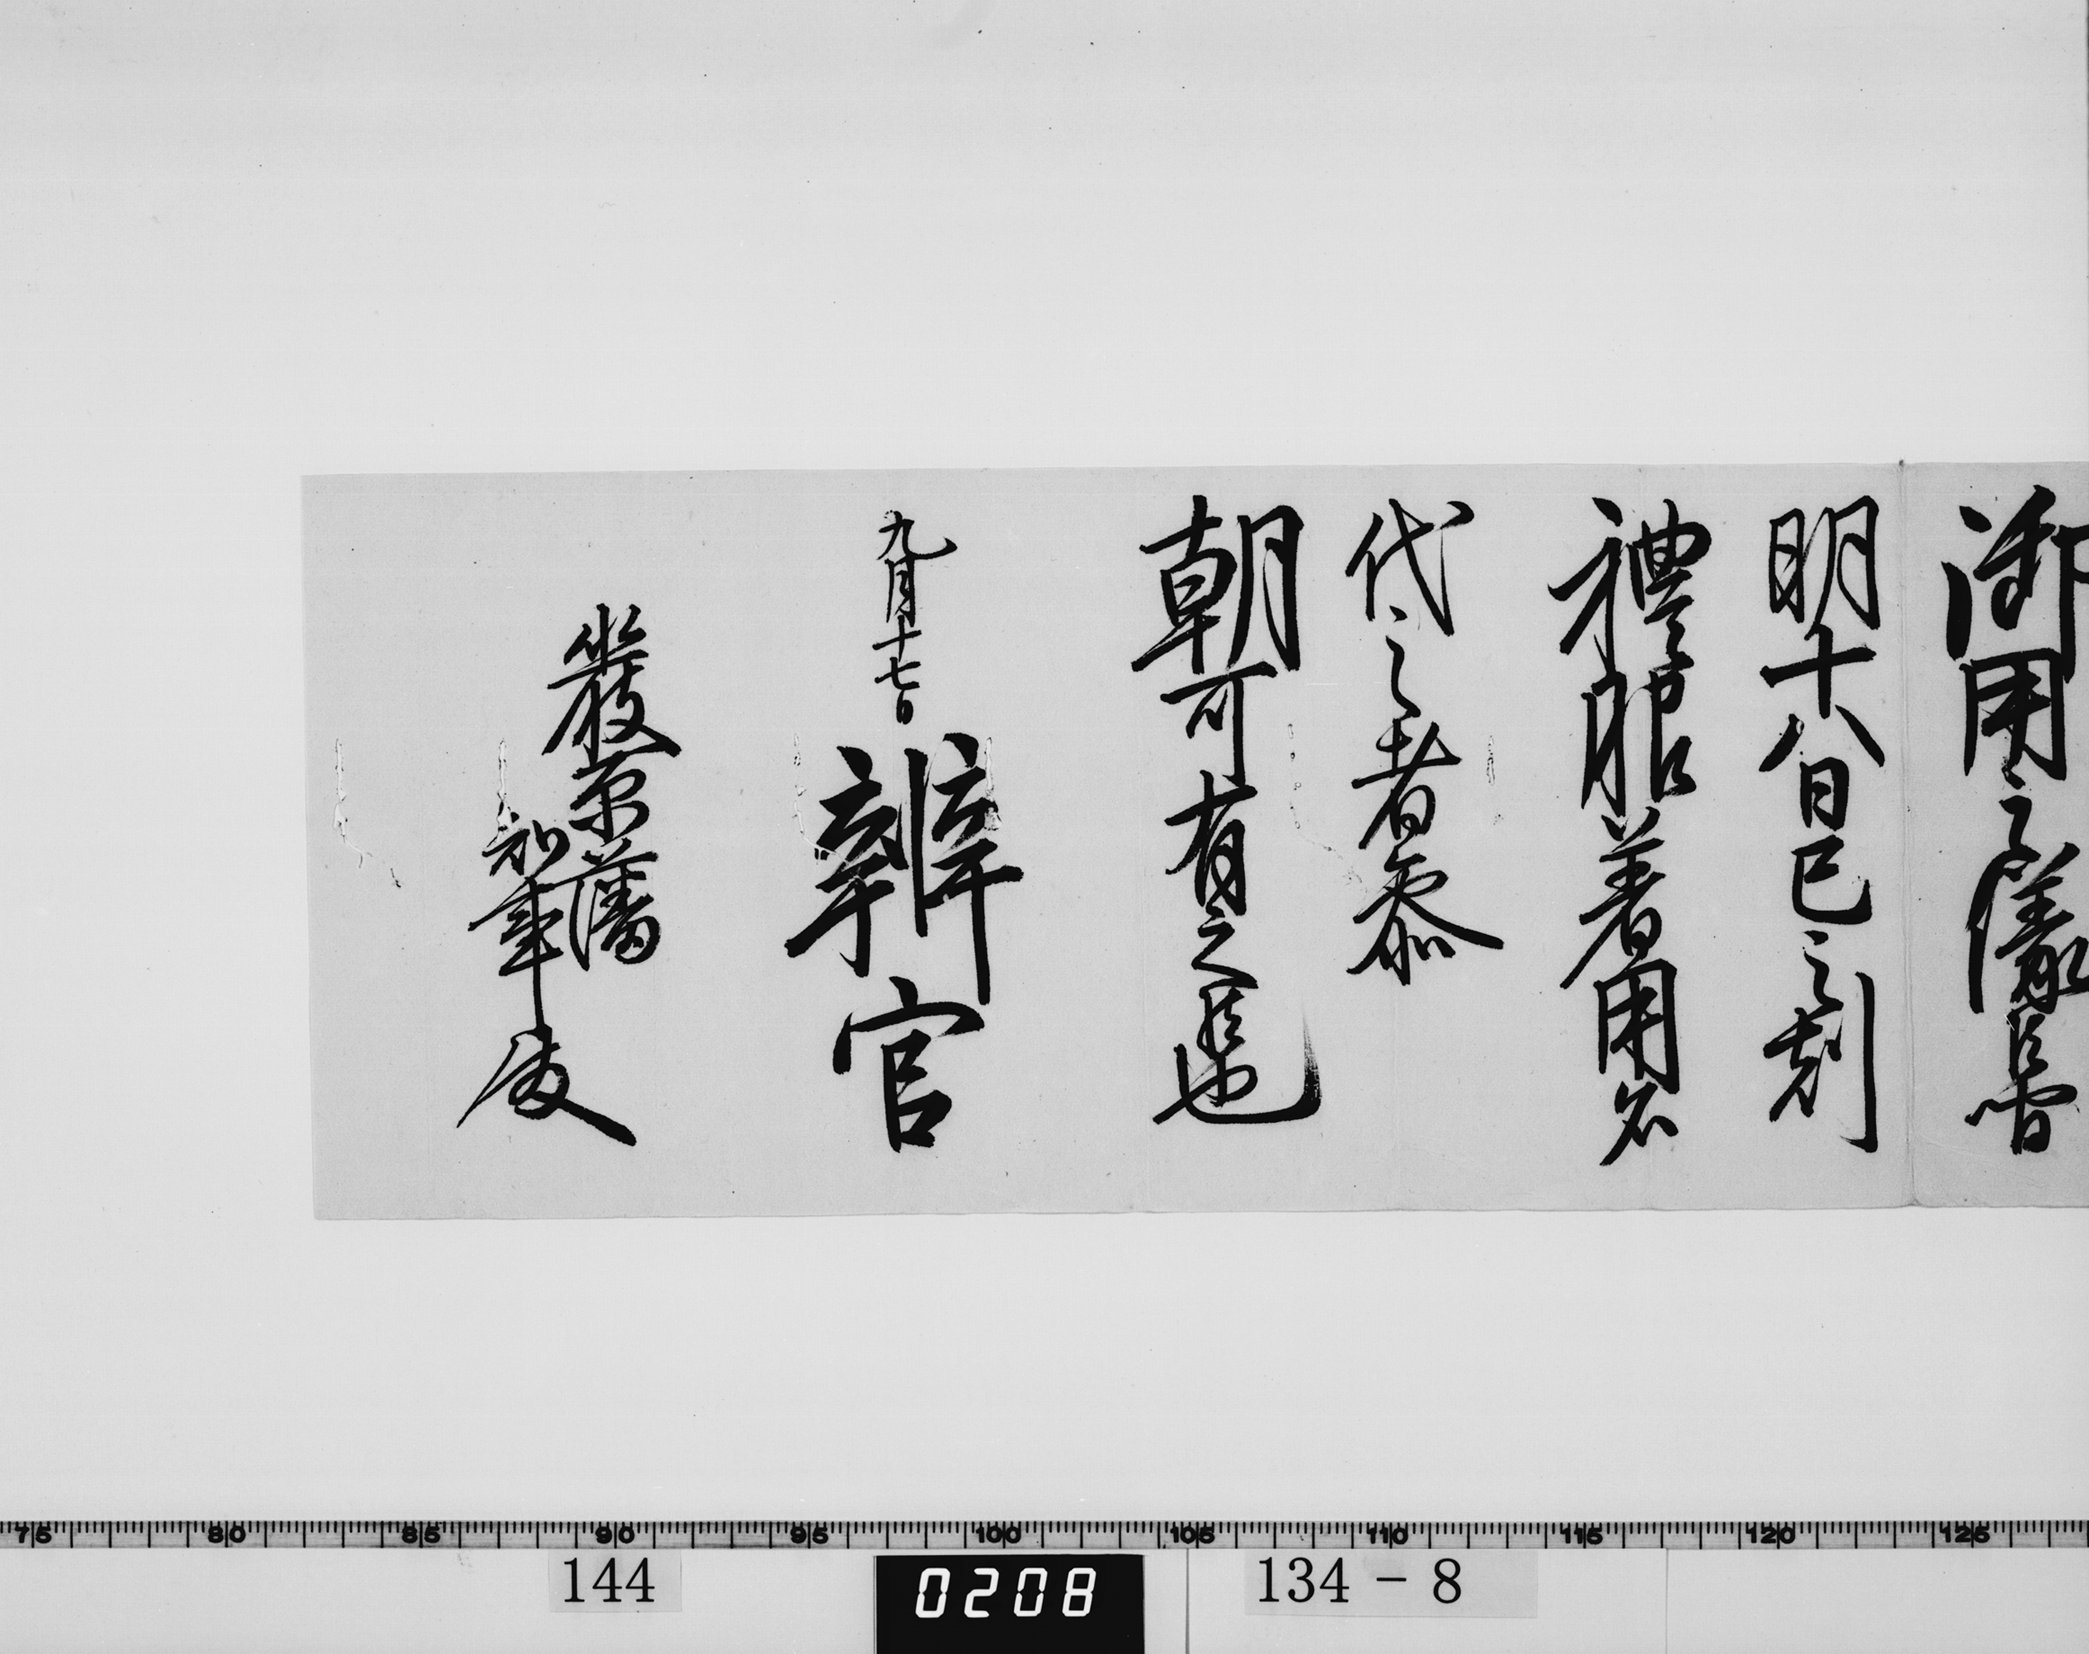 御用之儀候間
明十八日巳之刻
禮服着用名
代之者参
朝可有之候也
九月十七日
辨官
嚴原藩
知事殿
75 80 85 90 95 100 105 110 115 120 125
144
0208
134-8